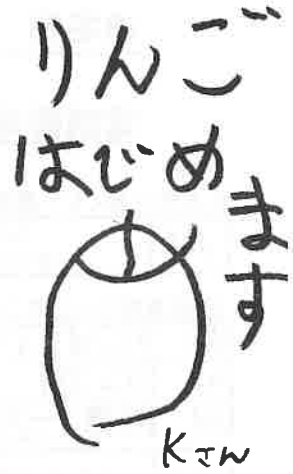 りんご
はじめ
ます
Kさん